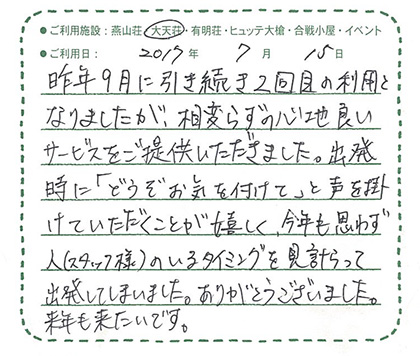 ●ご利用施設：燕山荘・大天荘・有明荘・ヒュッテ大槍・合戦小屋・イベント
●ご利用日： 2017年 7月 15日
昨年9月に引き続き2回目の利用と
なりましたが、相変らずの心地良い
サービスをご提供いただきました。出発
時に「どうぞお気を付けて」と声を掛
けていただくことが嬉しく、今年も思わず
人(スタッフ様)のいるタイミングを見計らって
出発してしまいました。ありがとうございました。
来年も来たいです。